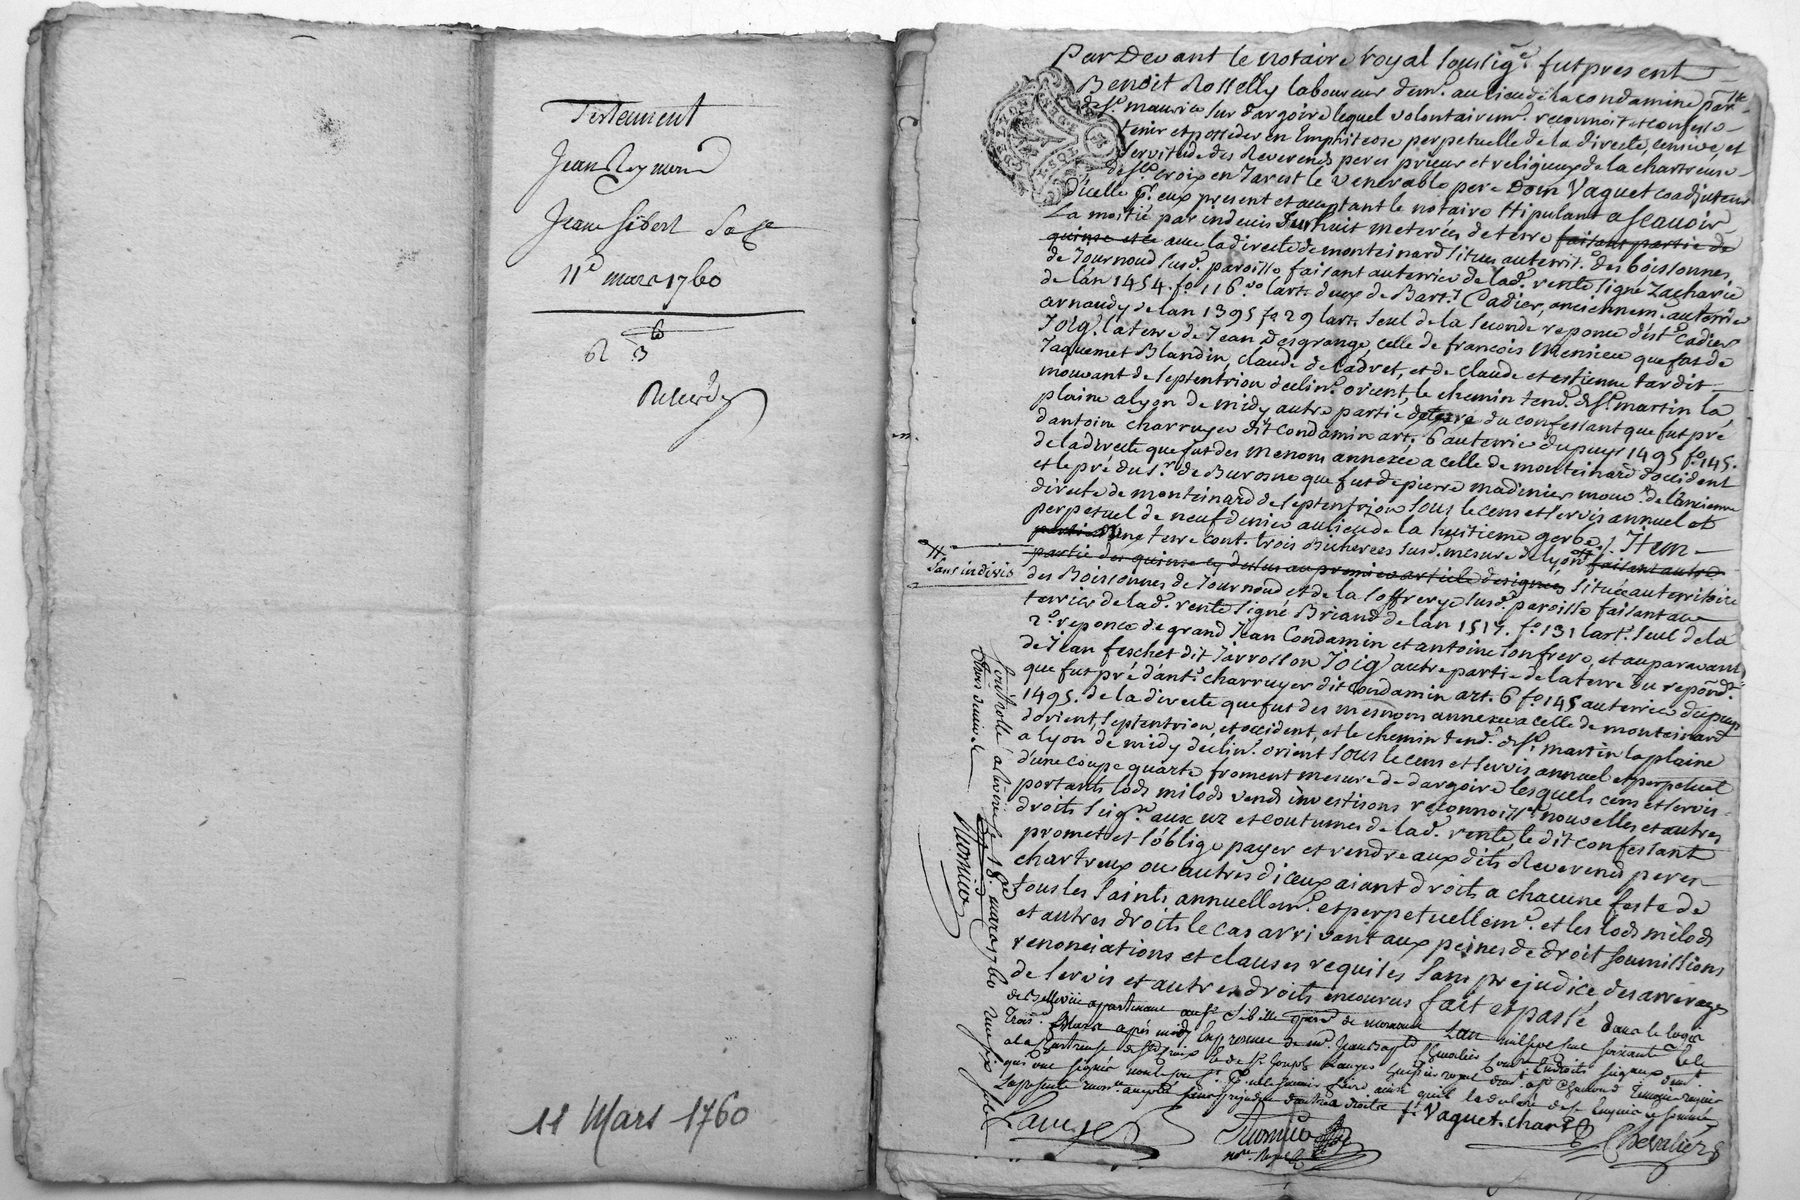 Testement
Jean Reymond
Jeane
11e mars 1760
6
3
11 Mars 1760
Par Devant le notaire royal soussigé. fut present
Benoit Rosselly laboureur dem. au lieu de la condamine parlle
de st maurice sur dargoire lequel volontairemt. reconnoit et confesse
tenir et posseder en Emphiteose perpetuelle de la directe, censive, et
servitude des Reverends peres prieur et religieux de la chartreuse
de ste. croix en Jarest le venerable pere Dom Vaguet coadjuteur
d'icelle pr. eux present et aceptant le notaire stipulant a scauoir
La moitié par indeuis Sur huit meterées de terre faisant partie de
quinse et ce auec la directe de monteinard situés au territ. des boissonnes
de Journoud susd. paroisse faisant au terrier de lad. rente signé Zacharie
de lan 1454. fo. 116 vo lart. deux de Bart. Cadier, anciennem. au terrier
arnaudy de lan 1395 fo 29 lart. seul de la seconde reponce dist Cadier
Joig. la terre de Jean Desgrange, celle de francois Menicieu que fut de
Jaquemet Blandin, claude de ladret, et de Claude et estienne tardit
mouvant de septentrion declint. orient, le chemin tend. de st. martin la
plaine a lyon de midy autre partie de terre du confessant que fut pré
d'antoine charruyer dit Condamin art. 6 au terrier dupuys 1495 fo. 145.
de la directe que fut des menom annexée a celle de monteinard d'occident
et le pré du sr. de Burosne que fut de pierre madinier mouv. de lancienne
directe de monteinard de septentrion sous le cens et servis annuel et
perpetuel de neuf denier au lieu de la huitieme gerbe. Item
partie D'une terre cont. trois Bicherées susd. mesure de lyon # faisant autre
# sans indivis
partie des quinse cy dessus au premier article designées situées au territoire
des Boissonnes de Journoud et de la soffrerye susd. paroisse faisant au
terrier de lad. rente signé Briand de lan 1517. fo. 131 lart. seul de la
2e reponce de grand Jean Condamin et antoine son frere, et auparavant
de Jean faschet dit Jarrosson Joig. autre partie de la terre du repond.
que fut pré d'ant. charruyer dit Condamin art. 6 fo. 145 au terrier dupuys
1495. de la directe que fut des mesnom annexée a celle de monteinard
d'orient, septentrion, et occident, et le chemin tend. de st. martin la plaine
a lyon de midy declint. orient sous le cens et servis annuel et perpetuel
d'une coupe quarte froment mesure de dargoire lesquels cens et servis
portants lods milods vends investisons reconnoisse nouvelles et autres
droits seigr. aux uz et coutumes de lad. rente, le dit confessant
promet et s'oblige payer et rendre aux dits Reverends peres
chartreux ou autres d'iceux aiant droits a chacune feste de
tous les saints annuellemt. et perpetuellemt. et les lods milods
et autres droits le cas arrivant aux peines de droit soumissions
renonciations et clauses requises sans prejudice des arrerages
de servis et autres droits encourus fait et passé dans le logis
de Bellevüe appartenant au sr. Sibille de mornant Lan mil sept cent soixante &
trois mars après midy En presence de mr. Jean Chevalier
a la chartreuse de ste Croix & de sr. Joseph Lauyer huissier royal
qui ont signés non le
Controllé a Rivedegier le 18e mars 1760 reçu six sols
trois deniers
Thomire
Lauyer
Thomire
nore. royal
f. Vaguet. chart.
Chevalier